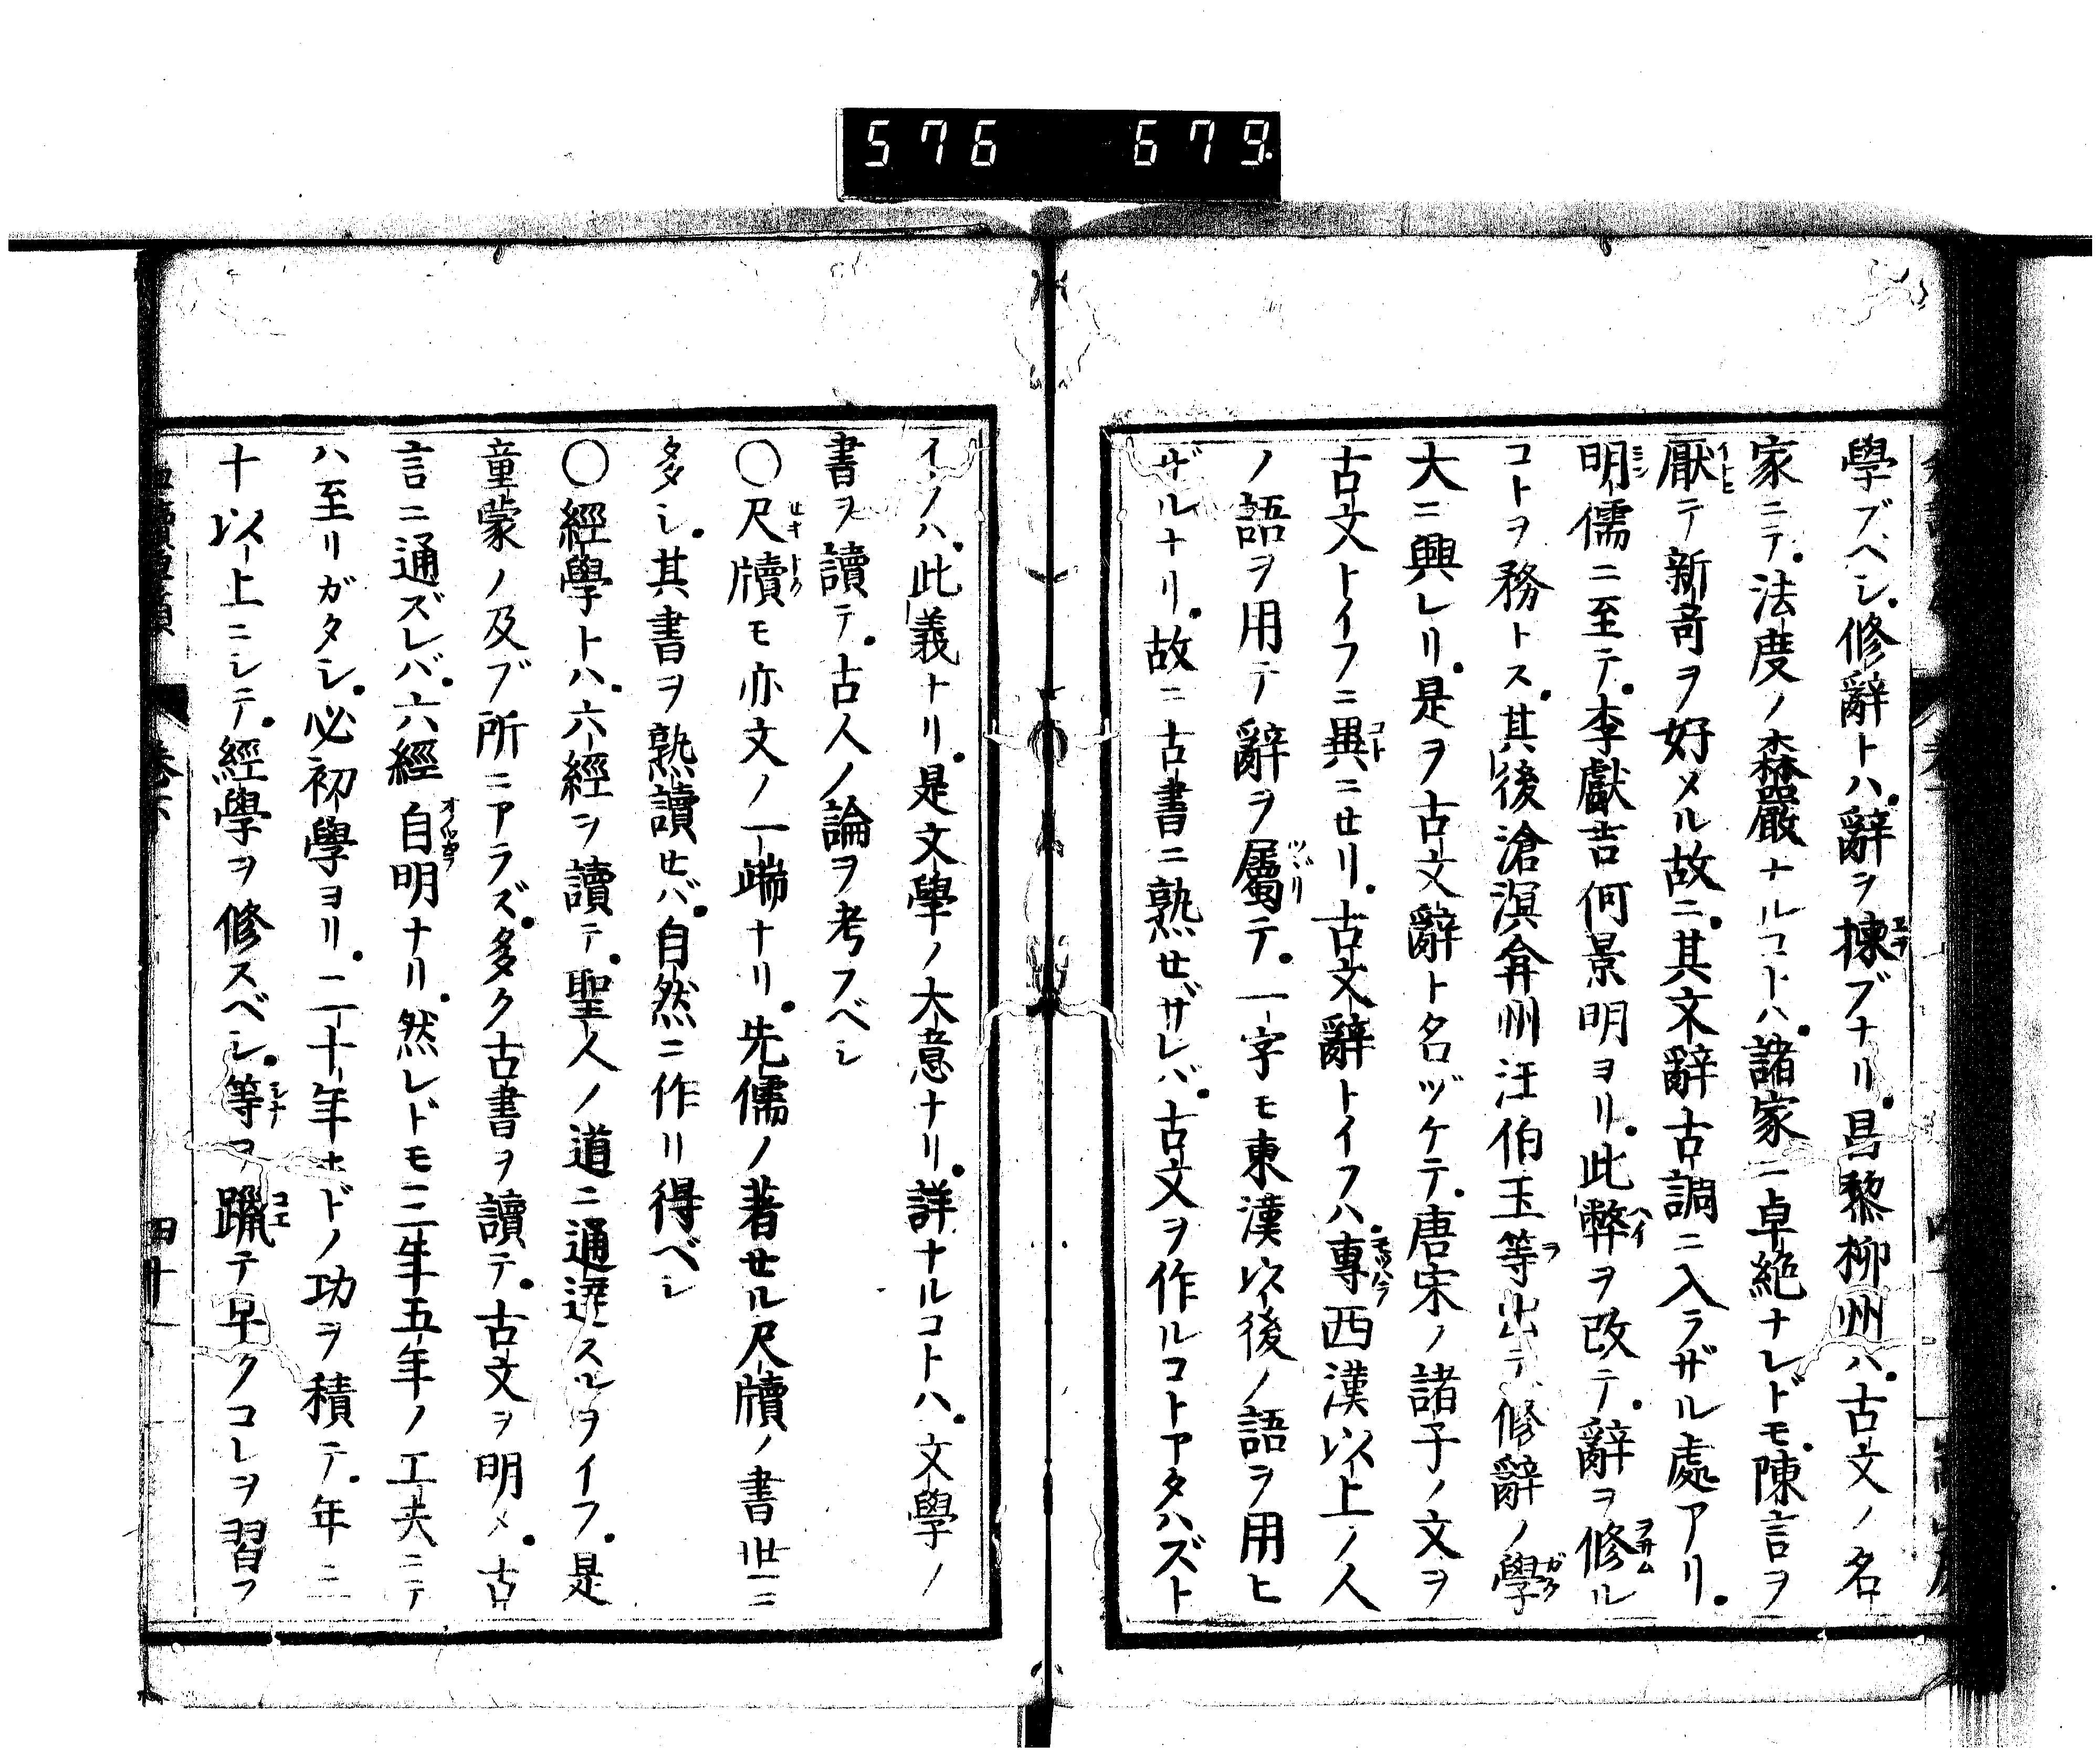 576 679
學ブベシ。修辭トハ。辭ヲ揀ブナリ。昌黎柳州ハ。古文ノ名
家ニテ。法度ノ森嚴ナルコトハ。諸家ニ卓絶ナレドモ。陳言ヲ
厭テ新奇ヲ好メル故ニ。其文辭古調ニ入ラザル處アリ。
明儒ニ至テ。李獻吉何景明ヨリ。此弊ヲ改テ。辭ヲ修ル
コトヲ務トス。其後滄溟弇州汪伯玉等出テ。修辭ノ學
大ニ興レリ。是ヲ古文辭ト名ヅケテ。唐宋ノ諸子ノ文ヲ
古文トイフニ異ニセリ。古文辭トイフハ。專西漢以上ノ人
ノ語ヲ用テ辭ヲ屬テ。一字モ東漢以後ノ語ヲ用ヒ
ザルナリ。故ニ古書ニ熟セザレバ。古文ヲ作ルコトアタハズト
イフハ。此義ナリ。是文學ノ大意ナリ。詳ナルコトハ。文學ノ
書ヲ讀テ。古人ノ論ヲ考フベシ
〇尺牘モ亦文ノ一端ナリ。先儒ノ著セル尺牘ノ書世ニ
多シ。其書ヲ熟讀セバ。自然ニ作リ得ベシ
〇經學トハ。六經ヲ讀テ。聖人ノ道ニ通達スルヲイフ。是
童蒙ノ及ブ所ニアラズ。多ク古書ヲ讀テ。古文ヲ明メ。古
言ニ通ズレバ。六經自明ナリ。然レドモ三年五年ノ工夫ニテ
ハ至リガタシ。必初學ヨリ。二十年ホドノ功ヲ積テ。年三
十以上ニシテ。經學ヲ修スベシ。等ヲ躐テ早クコレヲ習フ
四十一